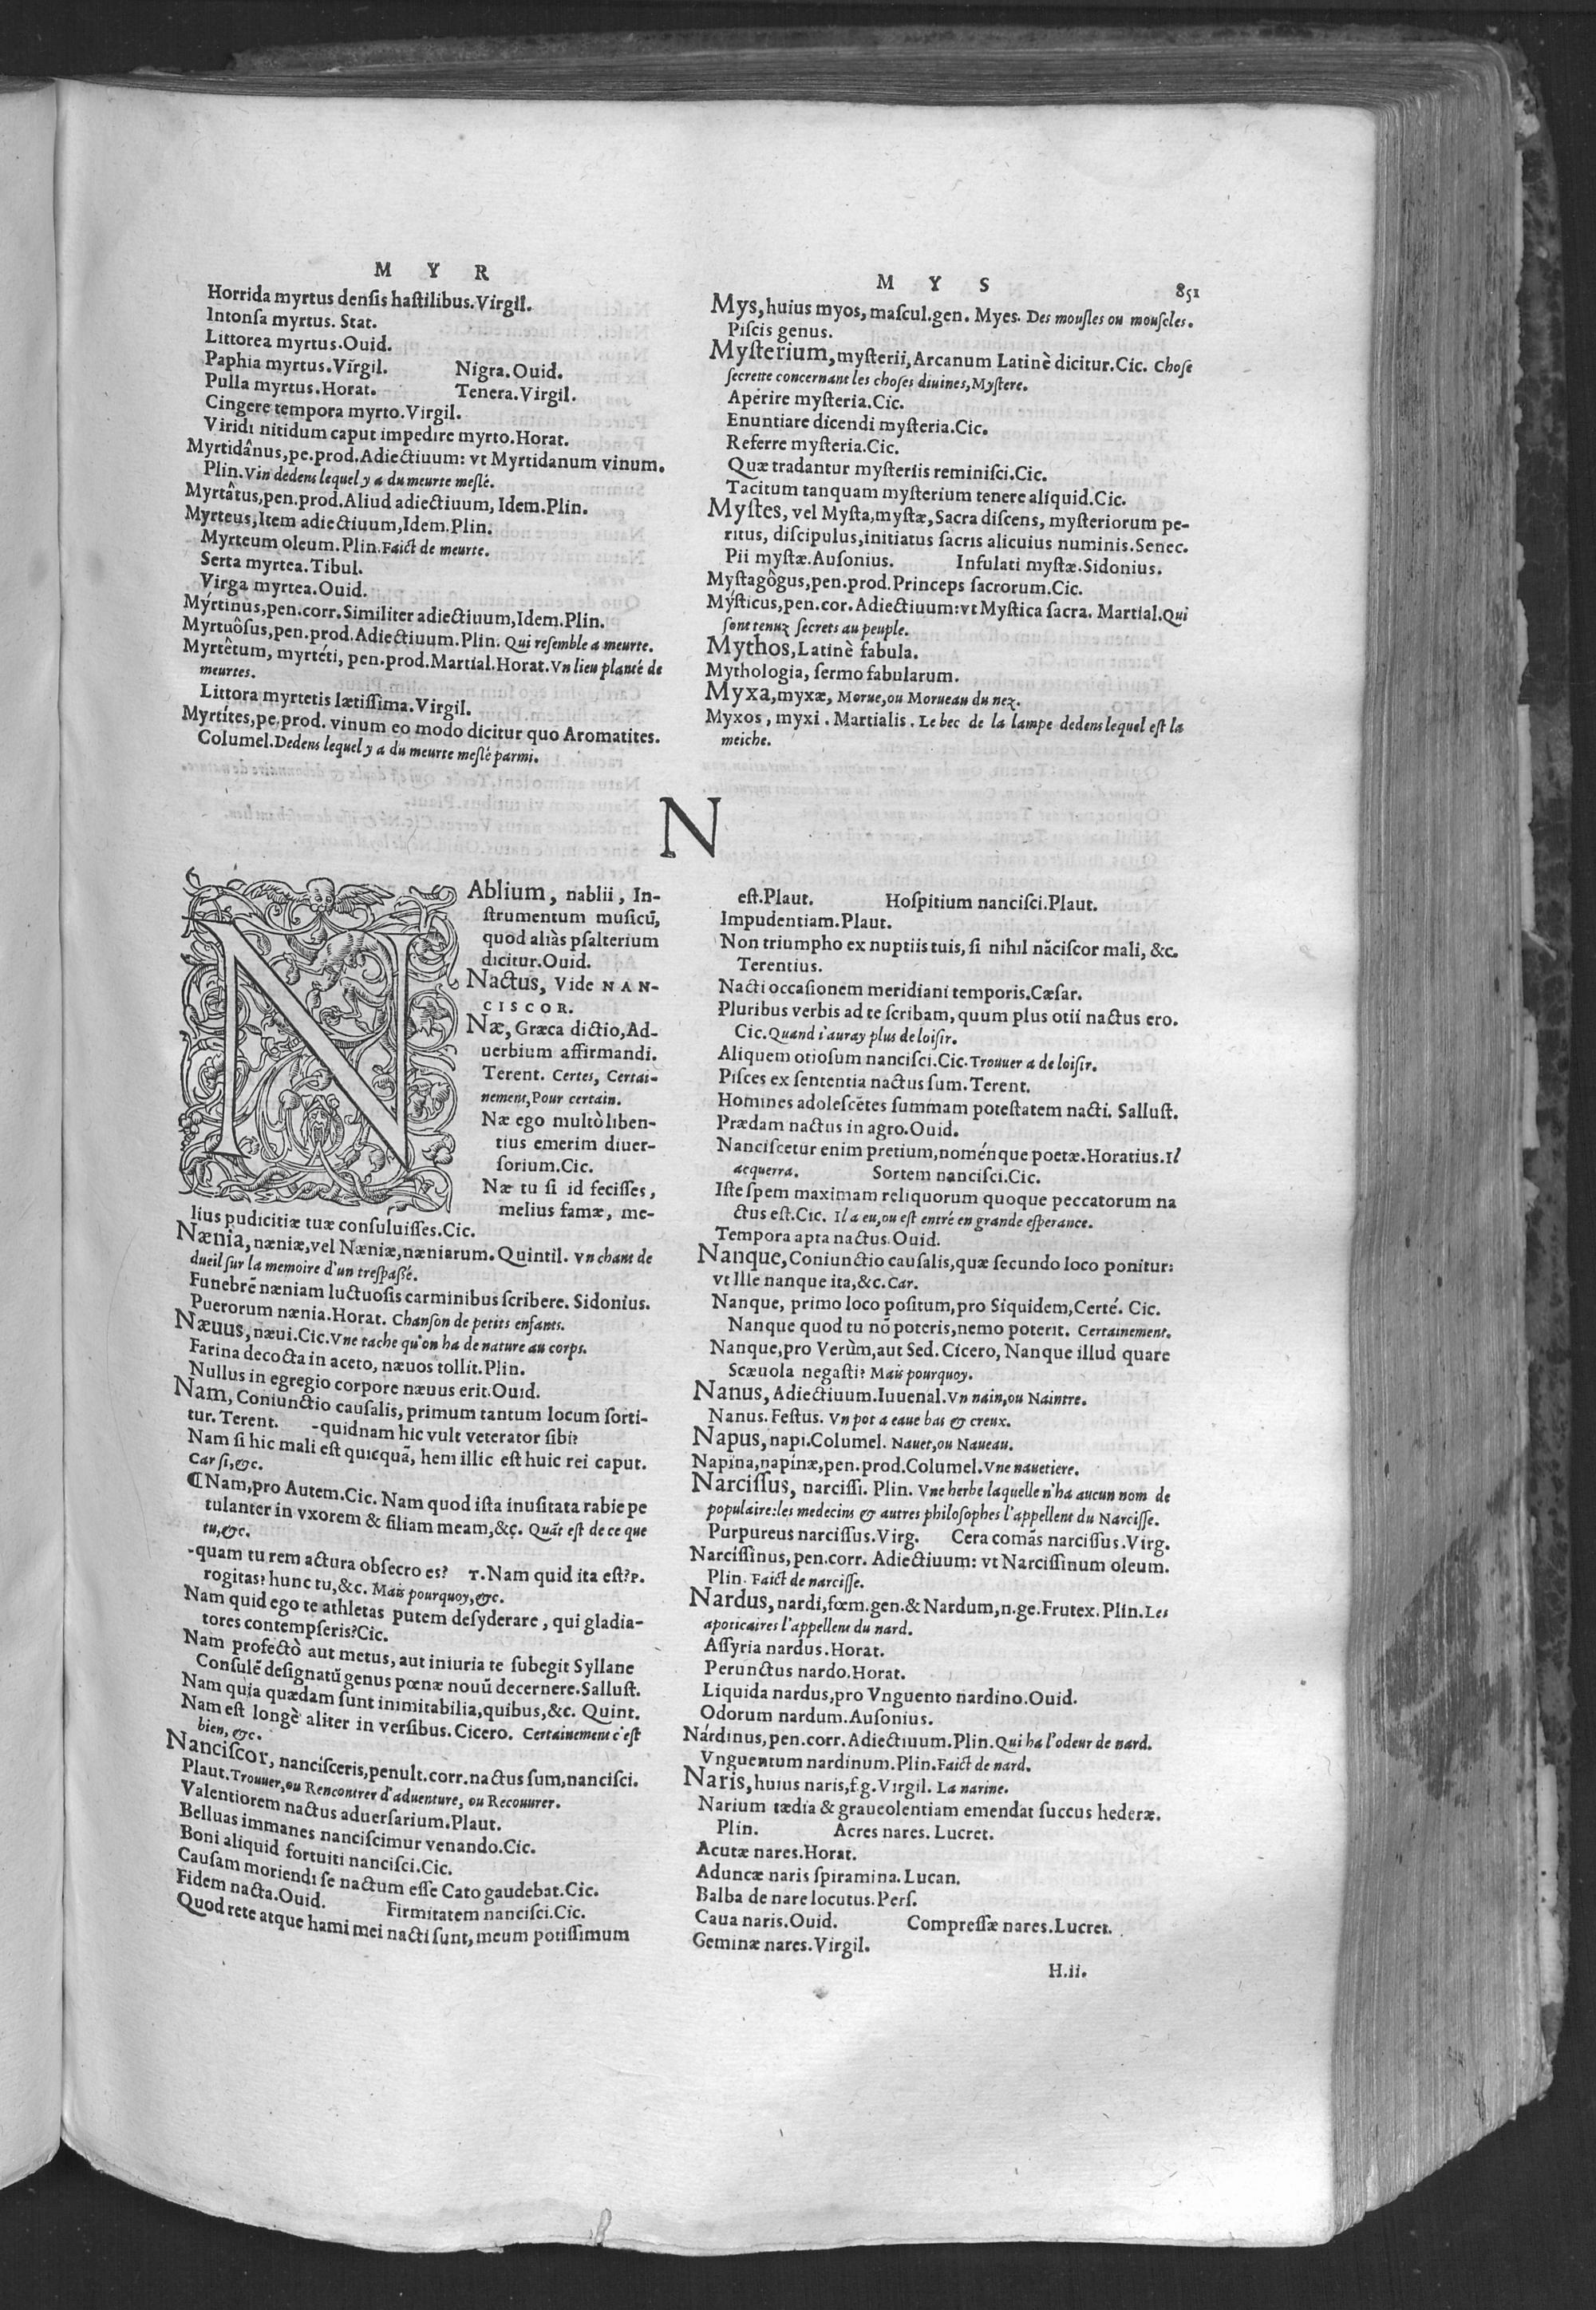 M Y R
Horrida myrtus densis hastilibus.Virgil.
Intonsa myrtus. Stat.
Littorea myrtus.Ouid.
Paphia myrtus.Virgil. Nigra.Ouid.
Pulla myrtus.Horat. Tenera.Virgil.
Cingere tempora myrto.Virgil.
Viridi nitidum caput impedire myrto.Horat.
Myrtidânus,pe.prod.Adiectiuum: vt Myrtidanum vinum.
Plin.Vin dedens lequel y a du meurte meslé.
Myrtâtus,pen.prod.Aliud adiectiuum, Idem.Plin.
Myrteus,Item adiectiuum,Idem.Plin.
Myrteum oleum.Plin.Faict de meurte.
Serta myrtea.Tibul.
Virga myrtea.Ouid.
Mýrtinus,pen.corr.Similiter adiectiuum,Idem.Plin.
Myrtuôsus,pen.prod.Adiectiuum.Plin. Qui resemble a meurte.
Myrtêtum, myrtéti, pen.prod.Martial.Horat.Vn lieu planté de
meurtes.
Littora myrtetis lætissima.Virgil.
Myrtítes,pe.prod. vinum eo modo dicitur quo Aromatites.
Columel.Dedens lequel y a du meurte meslé parmi.
M Y S
851
Mys,huius myos, mascul.gen. Myes. Des mousles ou mouscles.
Piscis genus.
Mysterium,mysterii,Arcanum Latinè dicitur.Cic. Chose
secrette concernant les choses diuines,Mystere.
Aperire mysteria.Cic.
Enuntiare dicendi mysteria.Cic.
Referre mysteria.Cic.
Quæ tradantur mysteriis reminisci.Cic.
Tacitum tanquam mysterium tenere aliquid.Cic.
Mystes, vel Mysta,mystæ,Sacra discens, mysteriorum pe-
ritus, discipulus,initiatus sacris alicuius numinis.Senec.
Pii mystæ.Ausonius. Infulati mystæ.Sidonius.
Mystagôgus,pen.prod.Princeps sacrorum.Cic.
Mýsticus,pen.cor.Adiectiuum:vt Mystica sacra. Martial.Qui
sont tenuz secrets au peuple.
Mythos,Latinè fabula.
Mythologia, sermo fabularum.
Myxa,myxæ, Morue,ou Morueau du nez.
Myxos, myxi. Martialis. Le bec de la lampe dedens lequel est la
meiche.
N
Ablium, nablii, In-
strumentum musicū,
quod aliàs psalterium
dicitur.Ouid.
Nactus, Vide NAN-
CISCOR.
Næ, Græca dictio,Ad-
uerbium affirmandi.
Terent. Certes, Certai-
nement,Pour certain.
Næ ego multò liben-
tius emerim diuer-
sorium.Cic.
Næ tu si id fecisses,
melius famæ, me-
lius pudicitiæ tuæ consuluisses.Cic.
Nænia, næniæ,vel Næniæ,næniarum.Quintil. Vn chant de
dueil sur la memoire d'un trespassé.
Funebrē næniam luctuosis carminibus scribere. Sidonius.
Puerorum nænia.Horat. Chanson de petits enfants.
Næuus, næui.Cic.Vne tache qu'on ha de nature au corps.
Farina decocta in aceto, næuos tollit.Plin.
Nullus in egregio corpore næuus erit.Ouid.
Nam, Coniunctio causalis, primum tantum locum sorti-
tur. Terent. -quidnam hic vult veterator sibi?
Nam si hic mali est quicquā, hem illic est huic rei caput.
Car si,&c.
¶Nam,pro Autem.Cic. Nam quod ista inusitata rabie pe
tulanter in vxorem & filiam meam,&c. Quāt est de ce que
tu,&c.
-quam tu rem actura obsecro es? T.Nam quid ita est?P.
rogitas? hunc tu,&c. Mais pourquoy,&c.
Nam quid ego te athletas putem desyderare, qui gladia-
tores contempseris?Cic.
Nam profectò aut metus, aut iniuria te subegit Syllane
Consulē designatū genus pœnæ nouū decernere.Sallust.
Nam quia quædam sunt inimitabilia,quibus,&c. Quint.
Nam est longè aliter in versibus. Cicero. Certainement c'est
bien, &c.
Nanciscor, nancisceris,penult.corr.nactus sum,nancisci.
Plaut.Trouuer,ou Rencontrer d'aduenture, ou Recouurer.
Valentiorem nactus aduersarium.Plaut.
Belluas immanes nanciscimur venando.Cic.
Boni aliquid fortuiti nancisci.Cic.
Causam moriendi se nactum esse Cato gaudebat.Cic.
Fidem nacta.Ouid. Firmitatem nancisci.Cic.
Quod rete atque hami mei nacti sunt, meum potissimum
est.Plaut. Hospitium nancisci.Plaut.
Impudentiam.Plaut.
Non triumpho ex nuptiis tuis, si nihil nāciscor mali, &c.
Terentius.
Nacti occasionem meridiani temporis.Cæsar.
Pluribus verbis ad te scribam, quum plus otii nactus ero.
Cic.Quand i'auray plus de loisir.
Aliquem otiosum nancisci.Cic.Trouuer a de loisir.
Pisces ex sententia nactus sum.Terent.
Homines adolescētes summam potestatem nacti. Sallust.
Prædam nactus in agro.Ouid.
Nanciscetur enim pretium,noménque poetæ.Horatius.Il
acquerra. Sortem nancisci.Cic.
Iste spem maximam reliquorum quoque peccatorum na
ctus est.Cic. Il a eu,ou est entré en grande esperance.
Tempora apta nactus.Ouid.
Nanque,Coniunctio causalis,quæ secundo loco ponitur:
vt Ille nanque ita,&c.Car.
Nanque, primo loco positum,pro Siquidem,Certé. Cic.
Nanque quod tu nō poteris,nemo poterit. Certainement.
Nanque,pro Verùm,aut Sed. Cicero, Nanque illud quare
Scæuola negasti? Mais pourquoy.
Nanus, Adiectiuum.Iuuenal.Vn nain,ou Naintre.
Nanus. Festus. Vn pot a eaue bas & creux.
Napus, napi.Columel. Nauet,ou Naueau.
Napina,napínæ,pen.prod.Columel.Vne nauetiere.
Narcissus, narcissi. Plin. Vne herbe laquelle n'ha aucun nom de
populaire:les medecins & autres philosophes l'appellent du Narcisse.
Purpureus narcissus.Virg. Cera comās narcissus.Virg.
Narcissinus,pen.corr. Adiectiuum: vt Narcissinum oleum.
Plin. Faict de narcisse.
Nardus, nardi,fœm.gen.& Nardum,n.ge.Frutex. Plin.Les
apoticaires l'appellent du nard.
Assyria nardus.Horat.
Perunctus nardo.Horat.
Liquida nardus,pro Vnguento nardino.Ouid.
Odorum nardum.Ausonius.
Nárdinus,pen.corr.Adiectiuum.Plin.Qui ha l'odeur de nard.
Vnguentum nardinum.Plin.Faict de nard.
Naris,huius naris,f.g.Virgil. La narine.
Narium tædia & graueolentiam emendat succus hederæ.
Plin. Acres nares. Lucret.
Acutæ nares.Horat.
Aduncæ naris spiramina.Lucan.
Balba de nare locutus.Pers.
Caua naris.Ouid. Compressæ nares.Lucret.
Geminæ nares.Virgil.
H.ii.